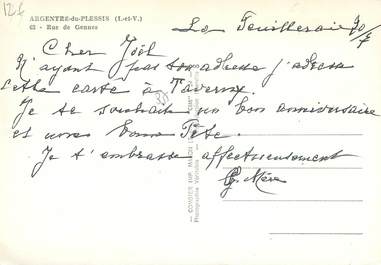 12€
ARGENTRÉ-du-PLESSIS (I.-et-V.)
63 - Rue de Gennes
La
Cher Joël
N'ayant pas ton adresse j'adresse
cette carte à Taverny.
Je te souhait un bon anniversaire
et une bonne Fête.
Je t'embrasse affectueusement
G. Mère
COMBIER IMP. MACON